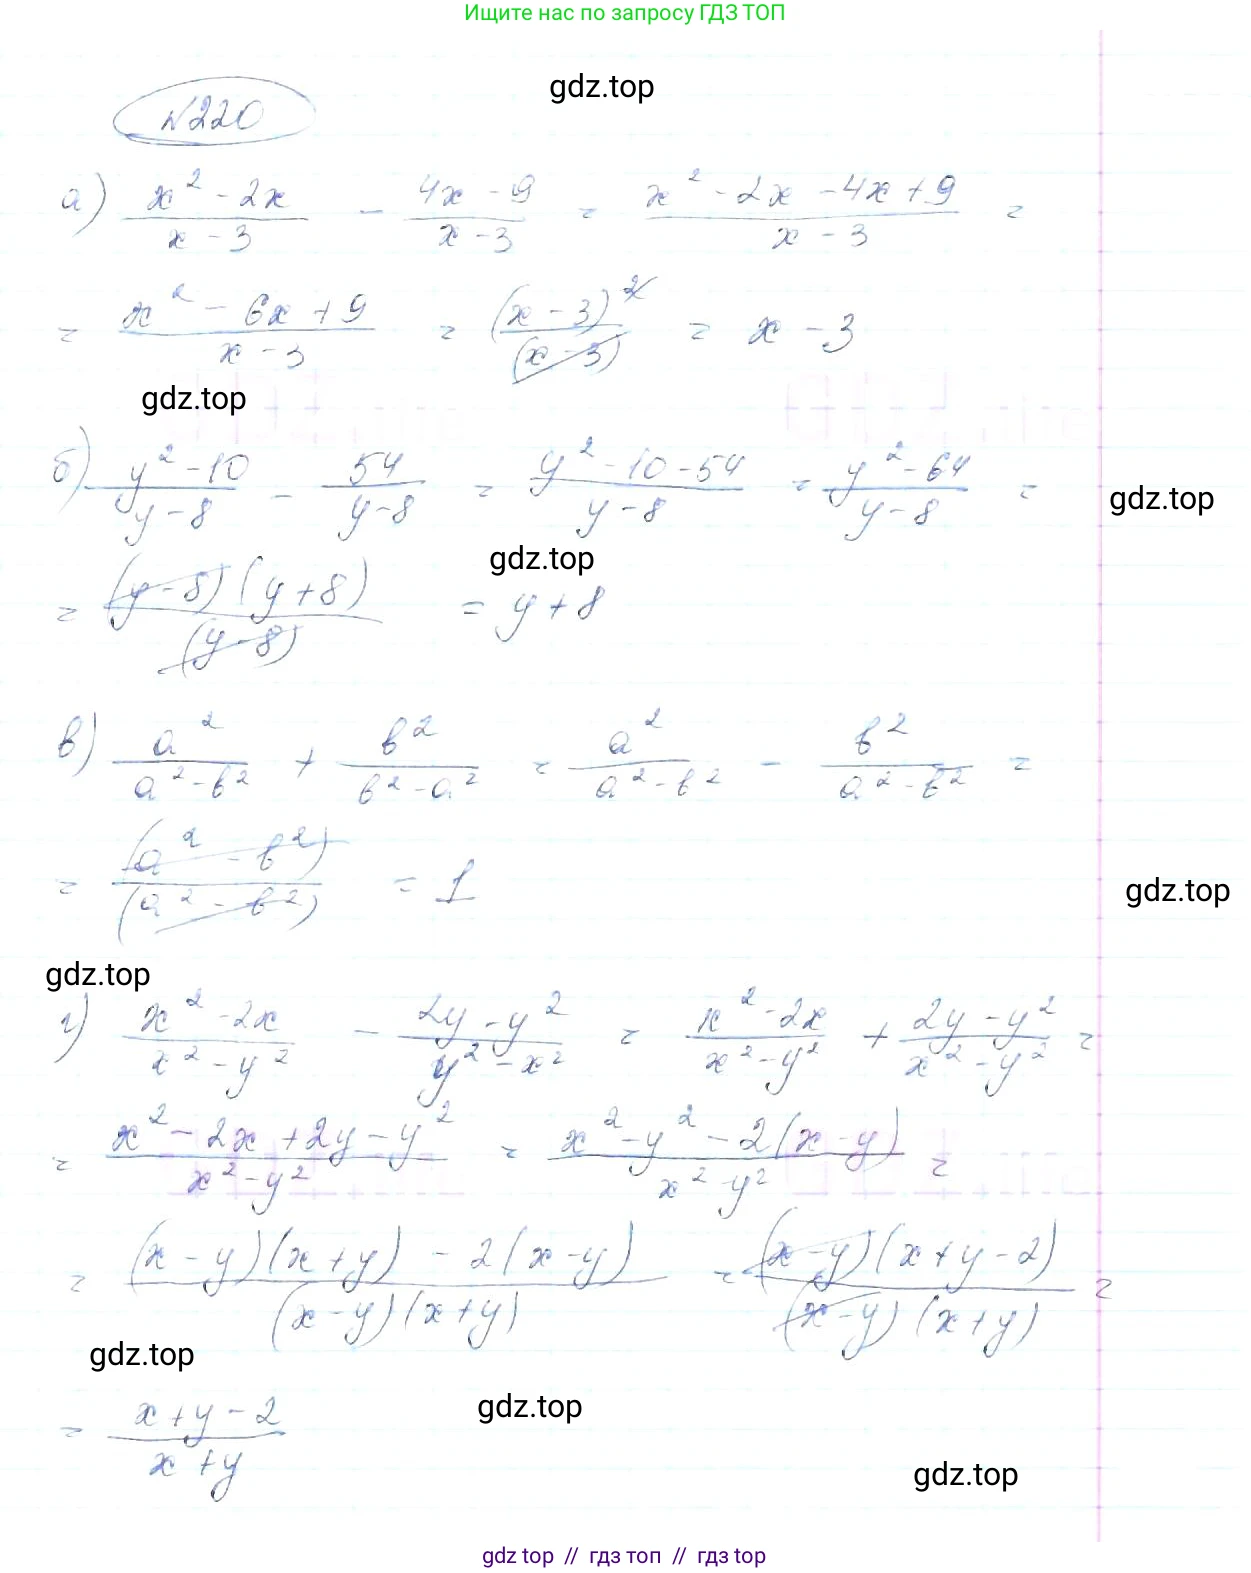 Ищите нас по запросу ГДЗ ТОП
gdz.top
№220
а) (x² - 2x)/(x - 3) - (4x - 9)/(x - 3) = (x² - 2x - 4x + 9)/(x - 3) =
= (x² - 6x + 9)/(x - 3) = (x - 3)²/(x - 3) = x - 3
gdz.top
б) (y² - 10)/(y - 8) - 54/(y - 8) = (y² - 10 - 54)/(y - 8) = (y² - 64)/(y - 8) =
gdz.top
gdz.top
= (y - 8)(y + 8)/(y - 8) = y + 8
в) a²/(a² - b²) + b²/(b² - a²) = a²/(a² - b²) - b²/(a² - b²) =
= (a² - b²)/(a² - b²) = 1
gdz.top
gdz.top
г) (x² - 2x)/(x² - y²) - (2y - y²)/(y² - x²) = (x² - 2x)/(x² - y²) + (2y - y²)/(x² - y²) =
= (x² - 2x + 2y - y²)/(x² - y²) = (x² - y² - 2(x - y))/(x² - y²) =
= ((x - y)(x + y) - 2(x - y))/((x - y)(x + y)) = (x - y)(x + y - 2)/((x - y)(x + y)) =
gdz.top
= (x + y - 2)/(x + y)
gdz.top
gdz.top
gdz top // гдз топ // гдз top